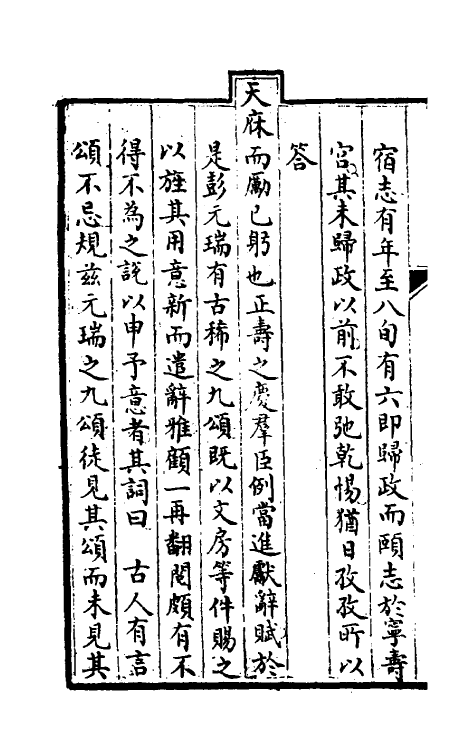 宿志有年至八旬有六即歸政而頤志於寧壽
宮其未歸政以前不敢弛乾惕猶日孜孜所以
答
天庥而勵己躬也正壽之慶羣臣例當進獻辭賦於
是彭元瑞有古稀之九頌既以文房等件賜之
以旌其用意新而遣辭雅顧一再翻閱頗有不
得不為之說以申予意者其詞曰　古人有言
頌不忘規茲元瑞之九頌徒見其頌而未見其